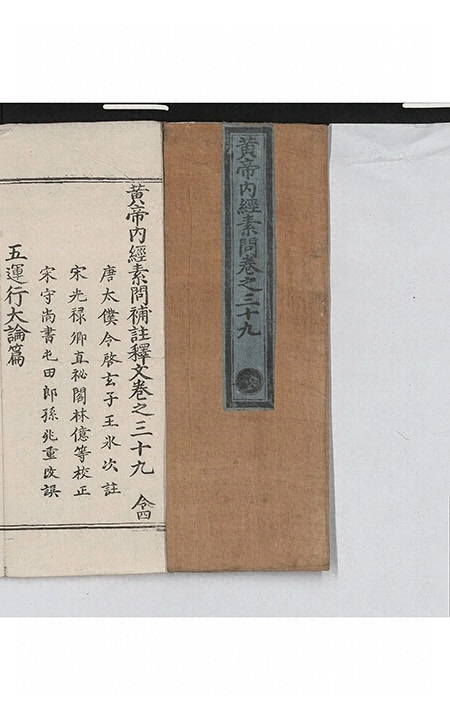 黃帝內經素問卷之三十九
黃帝內經素問補註釋文卷之三十九 令四
唐太僕令啓玄子王氷次註
宋光禄卿直祕閣林億等校正
宋守尚書屯田郎孫兆重改誤
五運行大論篇